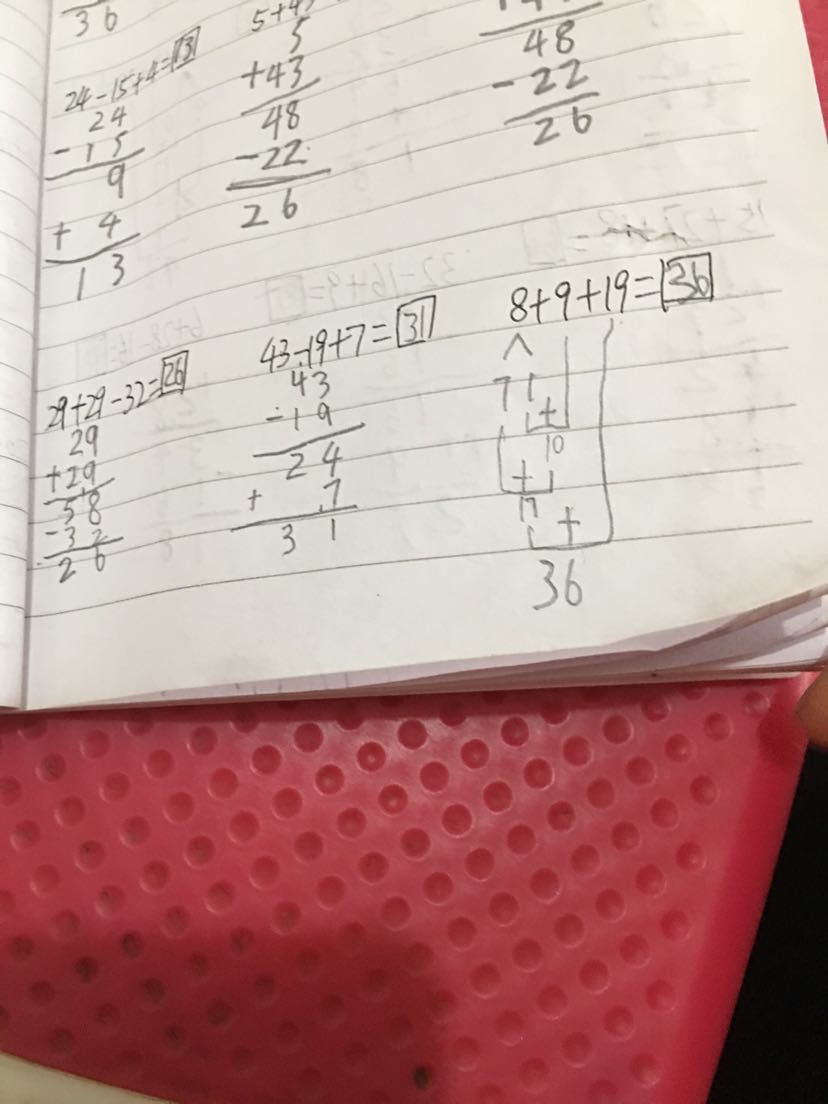 36
24-15+4=13
24
-15
9
+ 4
13
5+4
5
+43
48
-22
26
48
-22
26
29+29-32=26
29
+29
58
-32
26
43-19+7=31
43
-19
24
+ 7
31
8+9+19=36
7 1
+
10
+
17
+
36